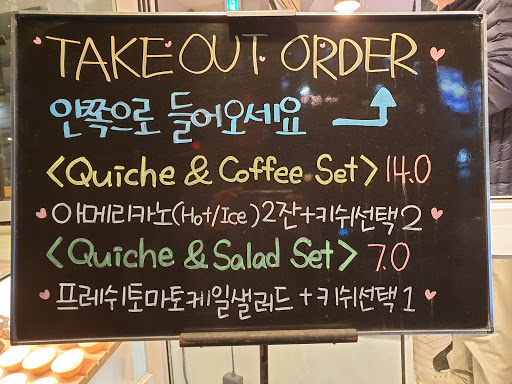 TAKE OUT ORDER
안쪽으로 들어오세요
<Quiche & Coffee Set> 14.0
아메리카노(Hot/Ice)2잔+키쉬선택2
<Quiche & Salad Set> 7.0
프레쉬토마토케일샐러드+키쉬선택1